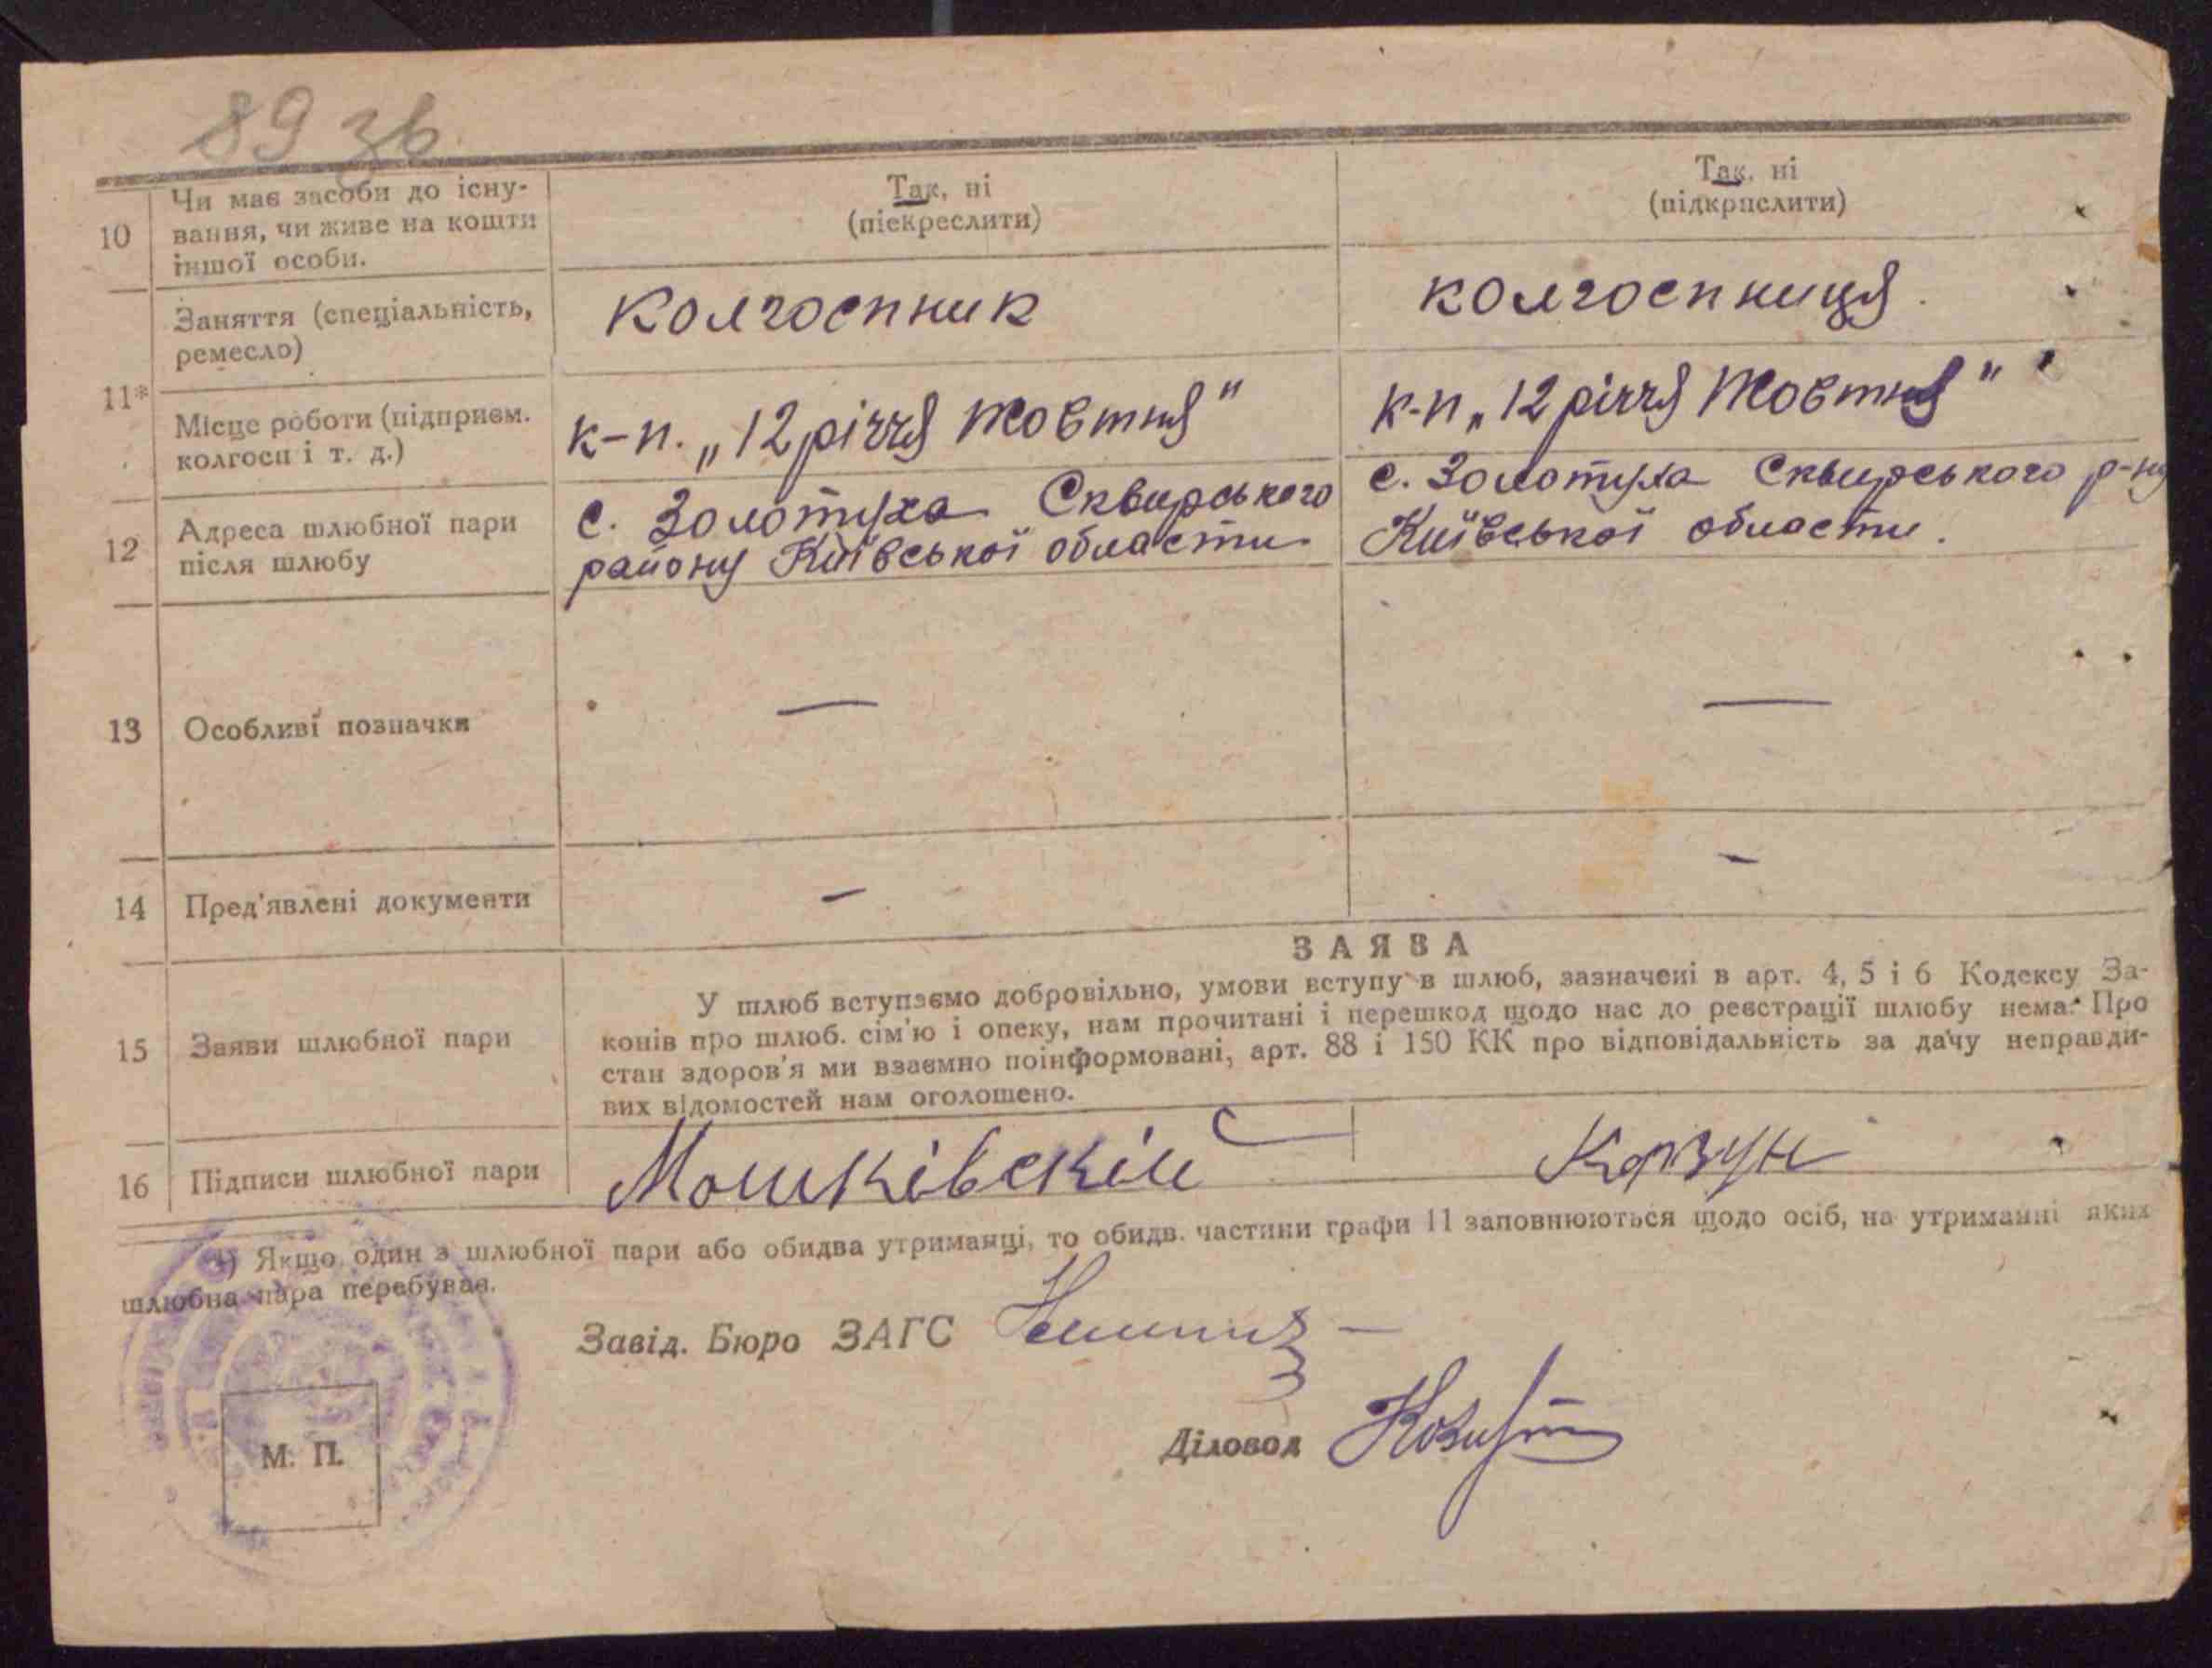 89 зв.
10
Чи має засоби до існу-
вання, чи живе на кошти
іншої особи.
Так, ні
(піекреслити)
Так, ні
(підкрпслити)
11*
Заняття (спеціальність,
ремесло)
колгоспник
колгоспниця.
Місце роботи (підприєм.
колгосп і т. д.)
к-п. „12 річчя Жовтня"
к-п „12 річчя Жовтня"
12
Адреса шлюбної пари
після шлюбу
с. Золотуха Сквирського
району Київської области
с. Золотуха Сквирського р-ну
Київської области.
13
Особливі позначки
—
—
14
Пред'явлені документи
—
—
15
Заяви шлюбної пари
ЗАЯВА
У шлюб вступаємо добровільно, умови вступу в шлюб, зазначені в арт. 4, 5 і 6 Кодексу За-
конів про шлюб. сім'ю і опеку, нам прочитані і перешкод щодо нас до реєстрації шлюбу нема. Про
стан здоров'я ми взаємно поінформовані, арт. 88 і 150 КК про відповідальність за дачу неправди-
вих відомостей нам оголошено.
16
Підписи шлюбної пари
Мошківскій
Корзун
*) Якщо один з шлюбної пари або обидва утриманці, то обидв. частини графи 11 заповнюються щодо осіб, на утриманні яких
шлюбна пара перебуває.
Завід. Бюро ЗАГС
Діловод
М. П.